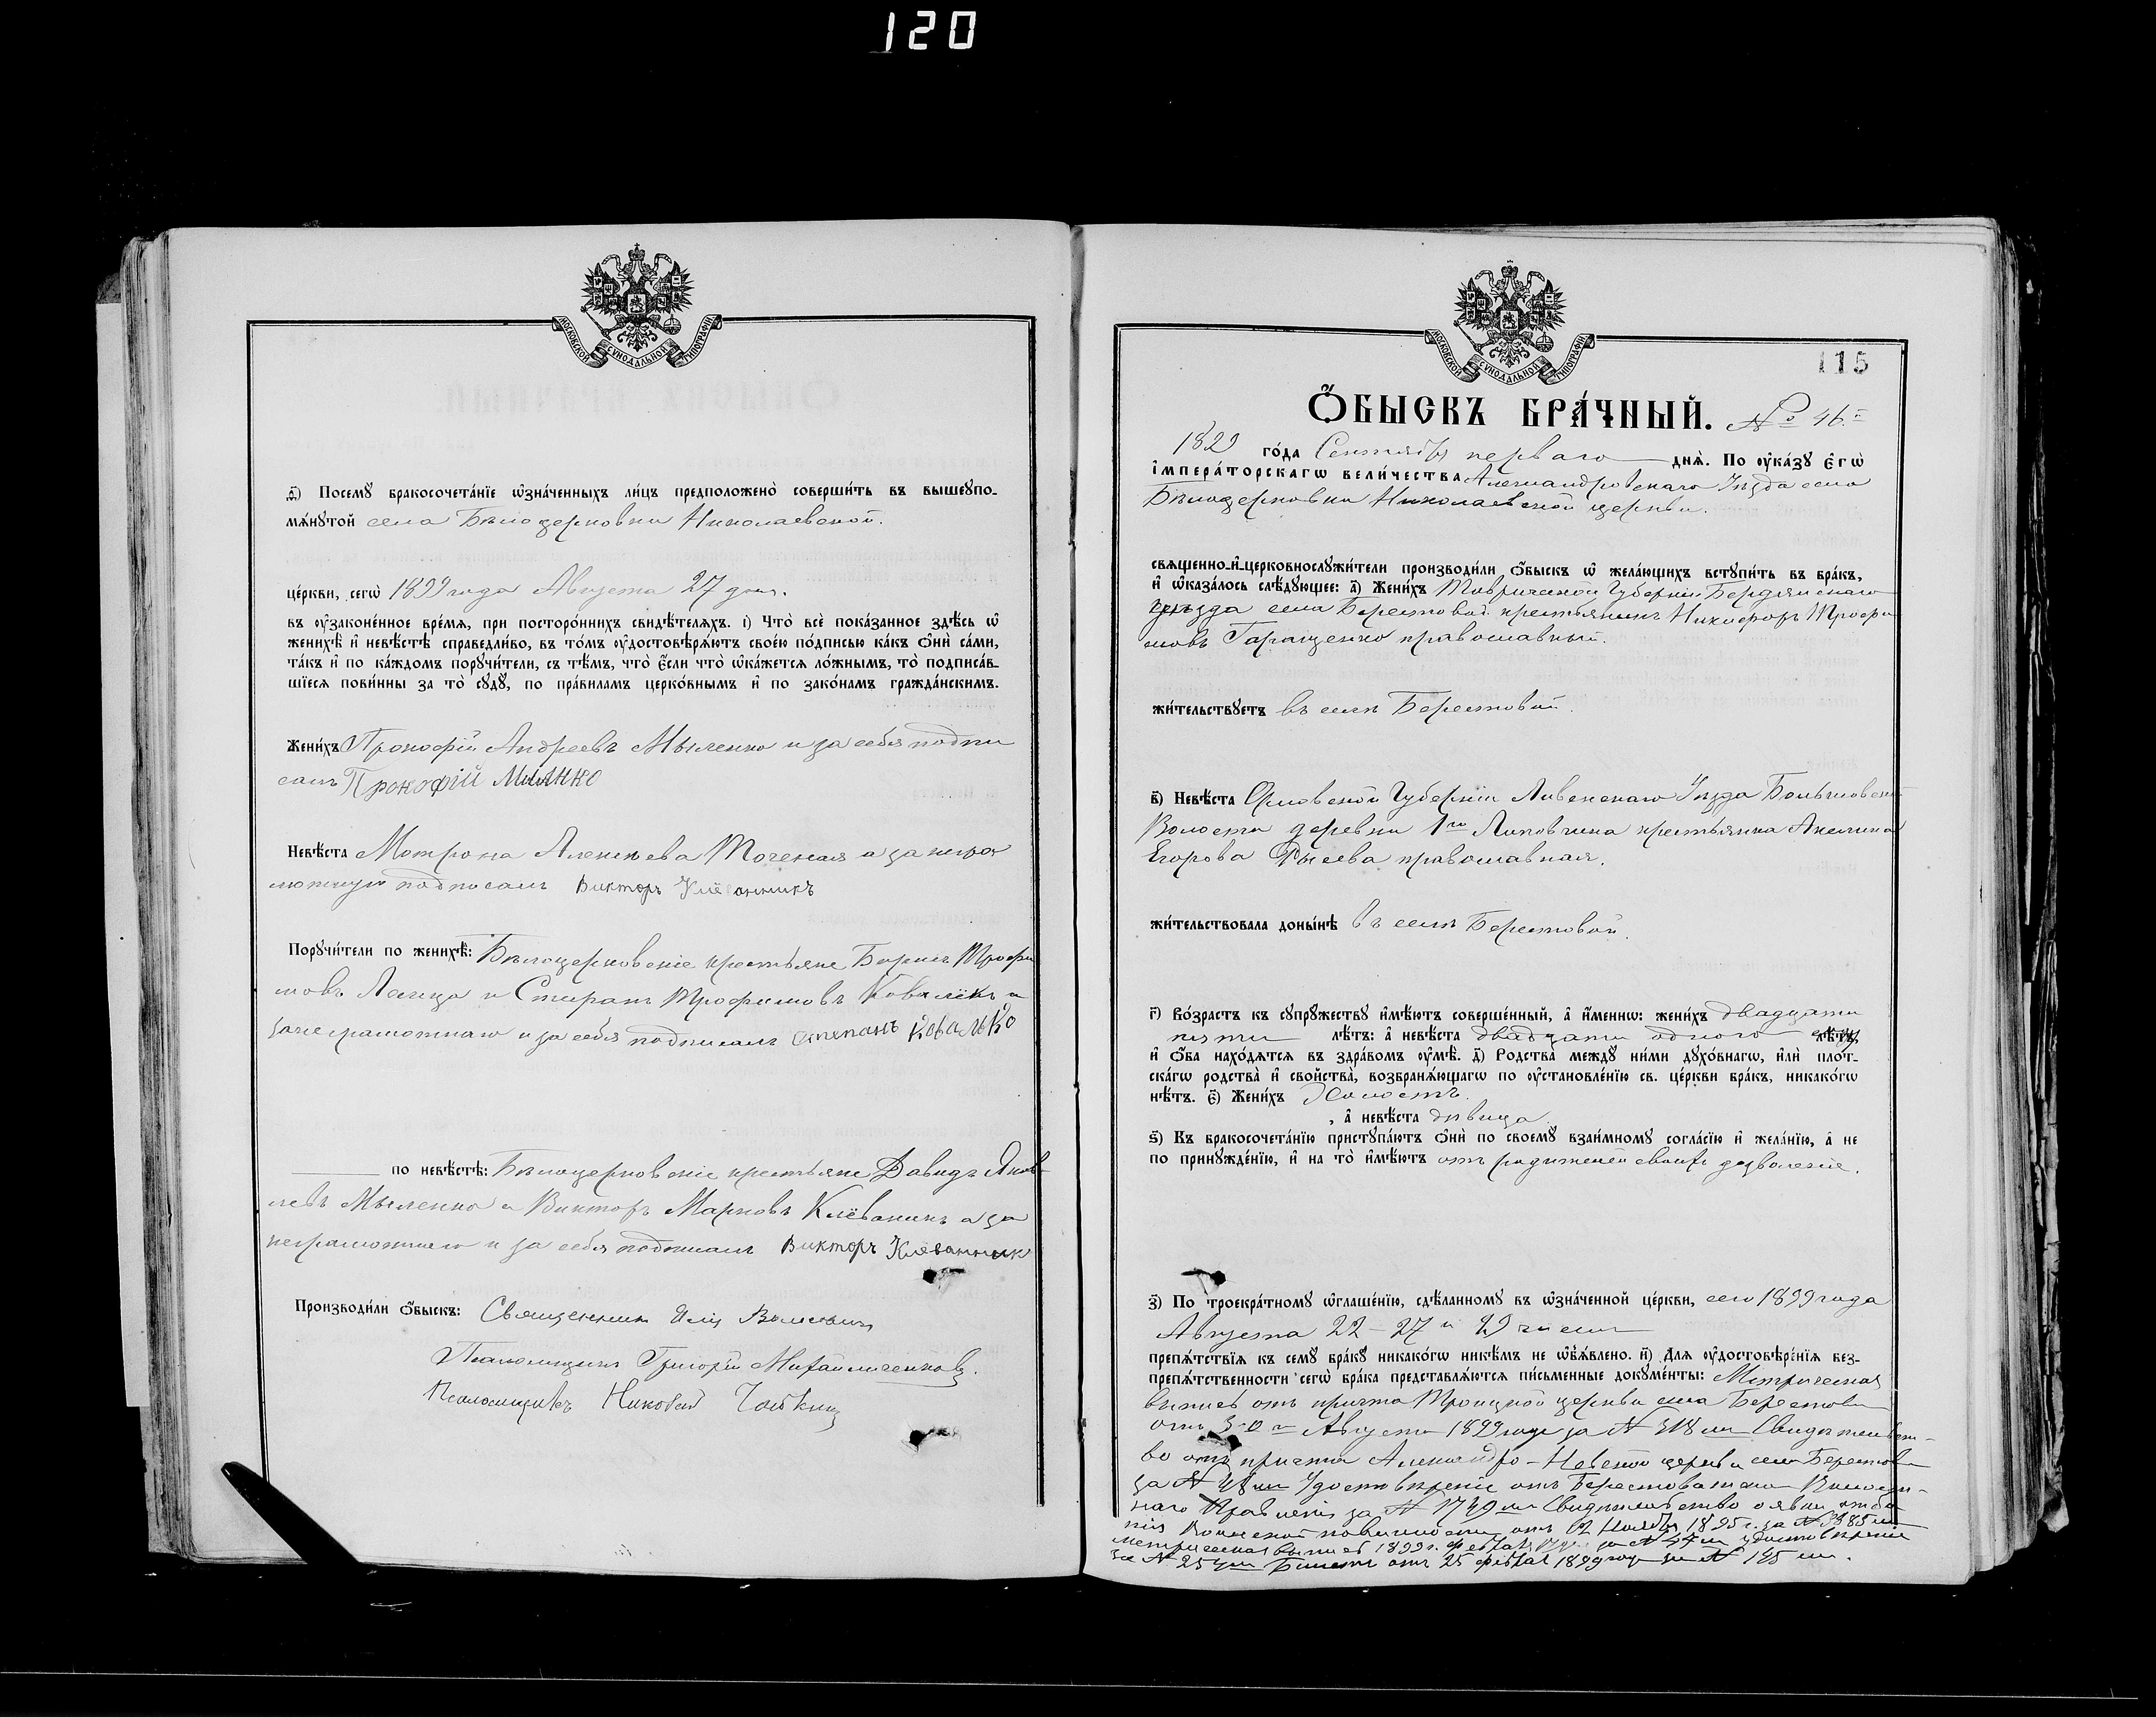 120
МОСКОВСКОЙ СѴНОДАЛЬНОЙ ТИПОГРАФІИ
ѳ҃) Посемꙋ̀ бракосочета́нїе ѡ҆зна́ченныхъ ли́цъ предположено̀ соверши́ть въ вышеꙋпо-
мѧ́нꙋтой села Бѣлоцерковки Николаевской.
це́ркви, сегѡ̀ 1899 года Августа 27 дня.
въ ᲂу҆зако́ненное вре́мѧ, при посторо́ннихъ свидѣ́телѧхъ. і҃) Что̀ всѐ пока́занное здѣ́сь ѡ҆
женихѣ̀ и҆ невѣ́стѣ справедли́во, въ то́мъ ᲂу҆достовѣрѧ́ютъ свое́ю по́дписью ка́къ ѻ҆нѝ са́ми,
та́къ и҆ по ка́ждомъ порꙋчи́тели, съ тѣ́мъ, что̀ є҆́сли что̀ ѡ҆ка́жетсѧ ло́жнымъ, то̀ подписа́в-
шїесѧ пови́нны за то̀ сꙋдꙋ̀, по пра́виламъ церко́внымъ и҆ по зако́намъ гражда́нскимъ.
Жени́хъ Прокофій Андреевъ Мыленко и за себя подпи
салъ Прокофій
Невѣ́ста Мотрона Алексѣева а за негра
мотную подписалъ Викторъ
Порꙋчи́тели по женихѣ̀: Бѣлоцерковскіе крестьяне Борисъ Трофи
мовъ и Стефанъ Трофимовъ а
за неграмотнаго и за себя подписалъ Степанъ Ковалько
по невѣ́стѣ: Бѣлоцерковскіе крестьяне Давидъ Яков
левъ Мыленко и Викторъ Марковъ Клёваникъ а за
неграмотнаго и за себя подписалъ Викторъ
Производи́ли ѻ҆́быскъ: Священникъ Илія
Псаломщикъ Григорій
Псаломщикъ Николай
МОСКОВСКОЙ СѴНОДАЛЬНОЙ ТИПОГРАФІИ
115
Ѻ҆́БЫСКЪ БРА́ЧНЫЙ. № 46.й
1899 го́да Сентября перваго днѧ̀. По ᲂу҆ка́зꙋ є҆гѡ̀
і҆мпера́торскагѡ вели́чества Александровскаго Уѣзда села
Бѣлоцерковки Николаевской церкви.
свѧще́нно-и҆-церковнослꙋжи́тели производи́ли ѻ҆́быскъ ѡ҆ жела́ющихъ встꙋпи́ть въ бра́къ,
и҆ ѡ҆каза́лось слѣ́дꙋющее: а҃) Жени́хъ Таврической Губерніи Бердянскаго
уѣзда села Берестовой крестьянинъ Никифоръ Трофи
мовъ Геращенко православный.
жи́тельствꙋетъ въ селѣ Берестовой.
в҃) Невѣ́ста Орловской Губерніи Ливенскаго Уѣзда
Волости деревни 1го Липовчика крестьянка Акилина
Егорова Рысева православная.
жи́тельствовала доны́нѣ въ селѣ Берестовой.
г҃) Во́зрастъ къ сꙋпрꙋ́жествꙋ и҆мѣ́ютъ соверше́нный, а҆ и҆́меннѡ: жени́хъ двадцати
пяти лѣ́тъ: а҆ невѣ́ста двадцати одного лѣ́тъ
и҆ ѻ҆́ба нахо́дѧтсѧ въ здра́вомъ ᲂу҆мѣ̀. д҃) Родства̀ междꙋ̀ ни́ми дꙋхо́внагѡ, и҆лѝ плот-
ска́гѡ родства̀ и҆ сво́йства, возбранѧ́ющагѡ по ᲂу҆становле́нїю св. це́ркви бра́къ, никако́гѡ
нѣ́тъ. є҃) Жени́хъ Холостъ
, а҆ невѣ́ста дѣвица
ѕ҃) Къ бракосочета́нїю пристꙋпа́ютъ ѻ҆нѝ по своемꙋ̀ взаи́мномꙋ согла́сїю и҆ жела́нїю, а҆ не
по принꙋжде́нїю, и҆ на то̀ и҆мѣ́ютъ отъ родителей своихъ дозволеніе.
з҃) По троекра́тномꙋ ѡ҆глаше́нїю, сдѣ́ланномꙋ въ ѡ҆зна́ченной це́ркви, сего 1899 года
Августа 22 - 27 и 29 чиселъ
препѧ́тствїѧ къ семꙋ̀ бра́кꙋ никако́гѡ никѣ́мъ не ѡ҆б̾ѧ́влено. и҃) Для ᲂу҆достовѣре́нїѧ без-
препѧ́тственности сегѡ̀ бра́ка представлѧ́ютсѧ пи́сьменные докꙋме́нты: Метрическая
выпись отъ причта Троицкой церкви села Берестовой
отъ 30 го Августа 1899 года за № 318 мъ Свидѣтельст-
во отъ причта Александро-Невской церкви села Берестовой
за № 48 мъ Удостовѣреніе отъ Берестоватскаго Волост-
наго Правленія за № 1749 мъ Свидѣтельство о явкѣ къ отбы
нія Воинской повинности отъ 12 Ноября 1895 г. за №
метрическая выпись 1899 г. удостовѣреніе
за № Билетъ отъ 25 1899 года за № 145 мъ.